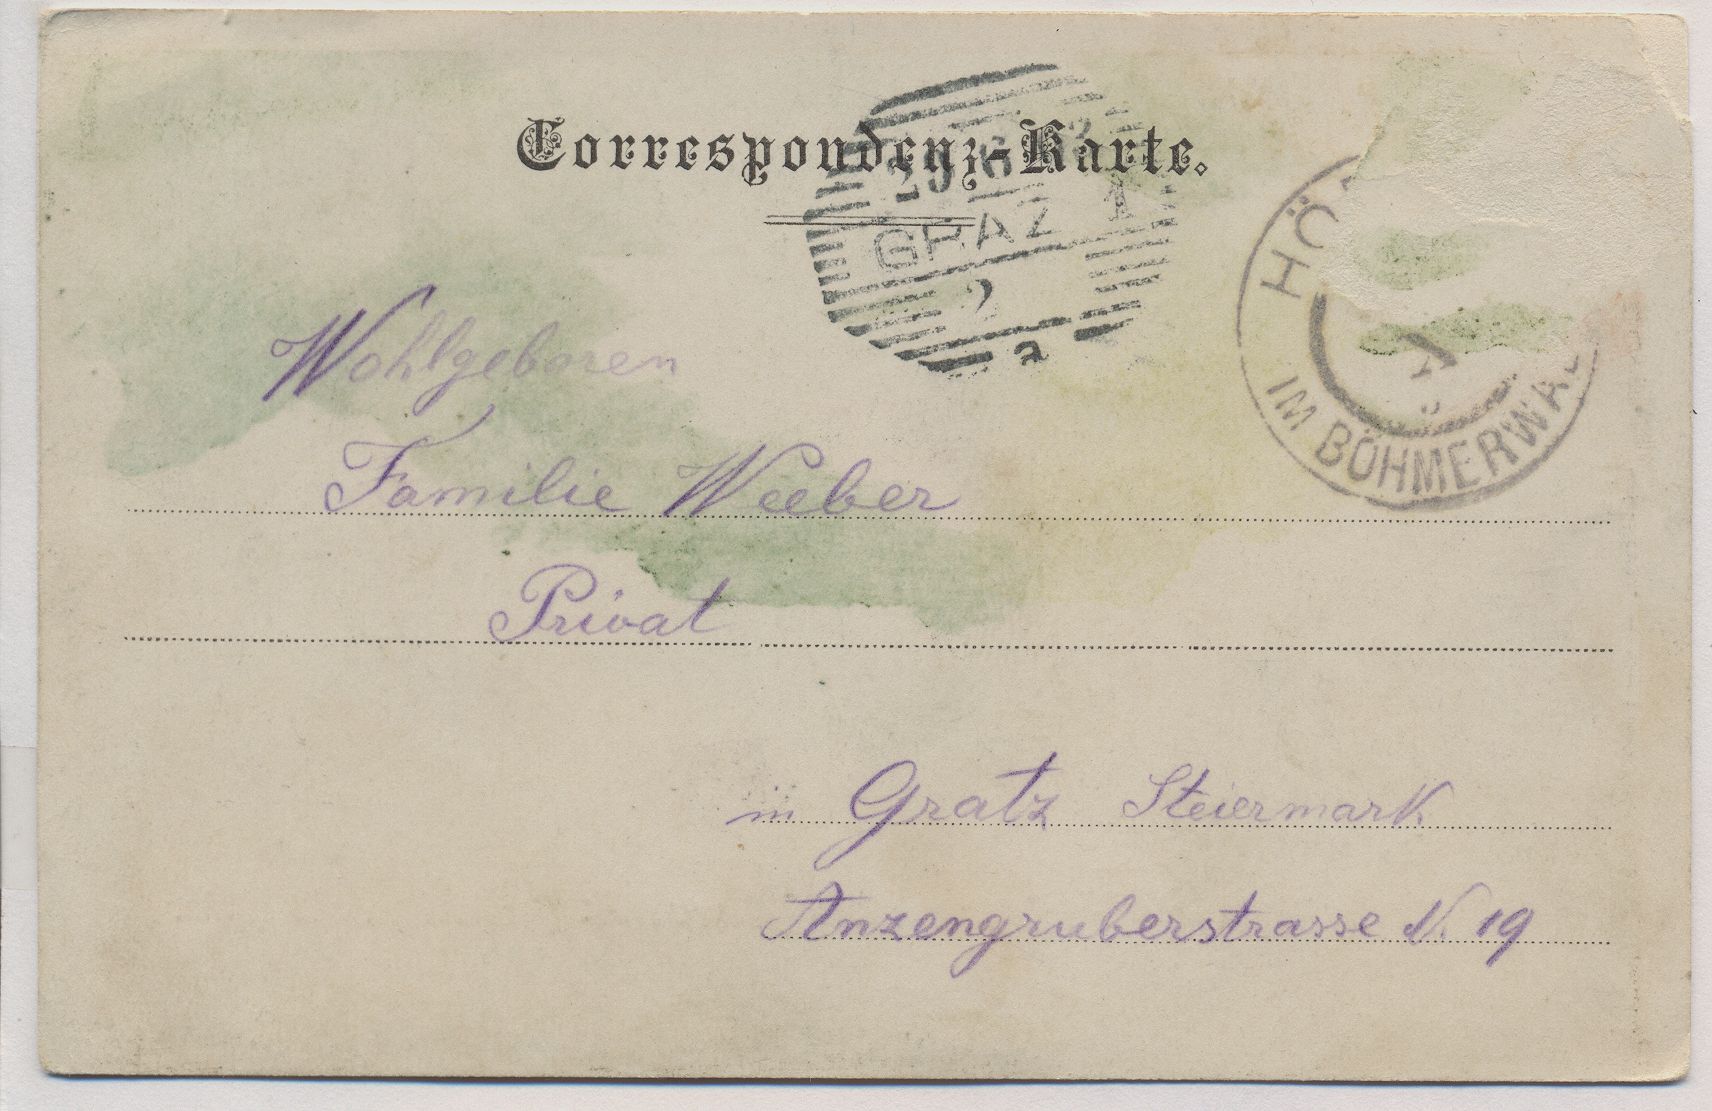 Correspondenz-Karte.
29 6
GRAZ 1
2
a
HÖ
IM BÖHMERWAL
Wohlgeboren
Familie Weeber
Privat
in Gratz Steiermark
Anzengruberstrasse N. 19